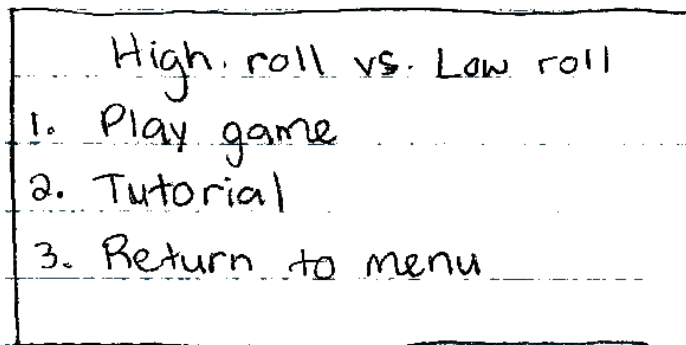 High roll vs. Low roll
1. Play game
2. Tutorial
3. Return to menu